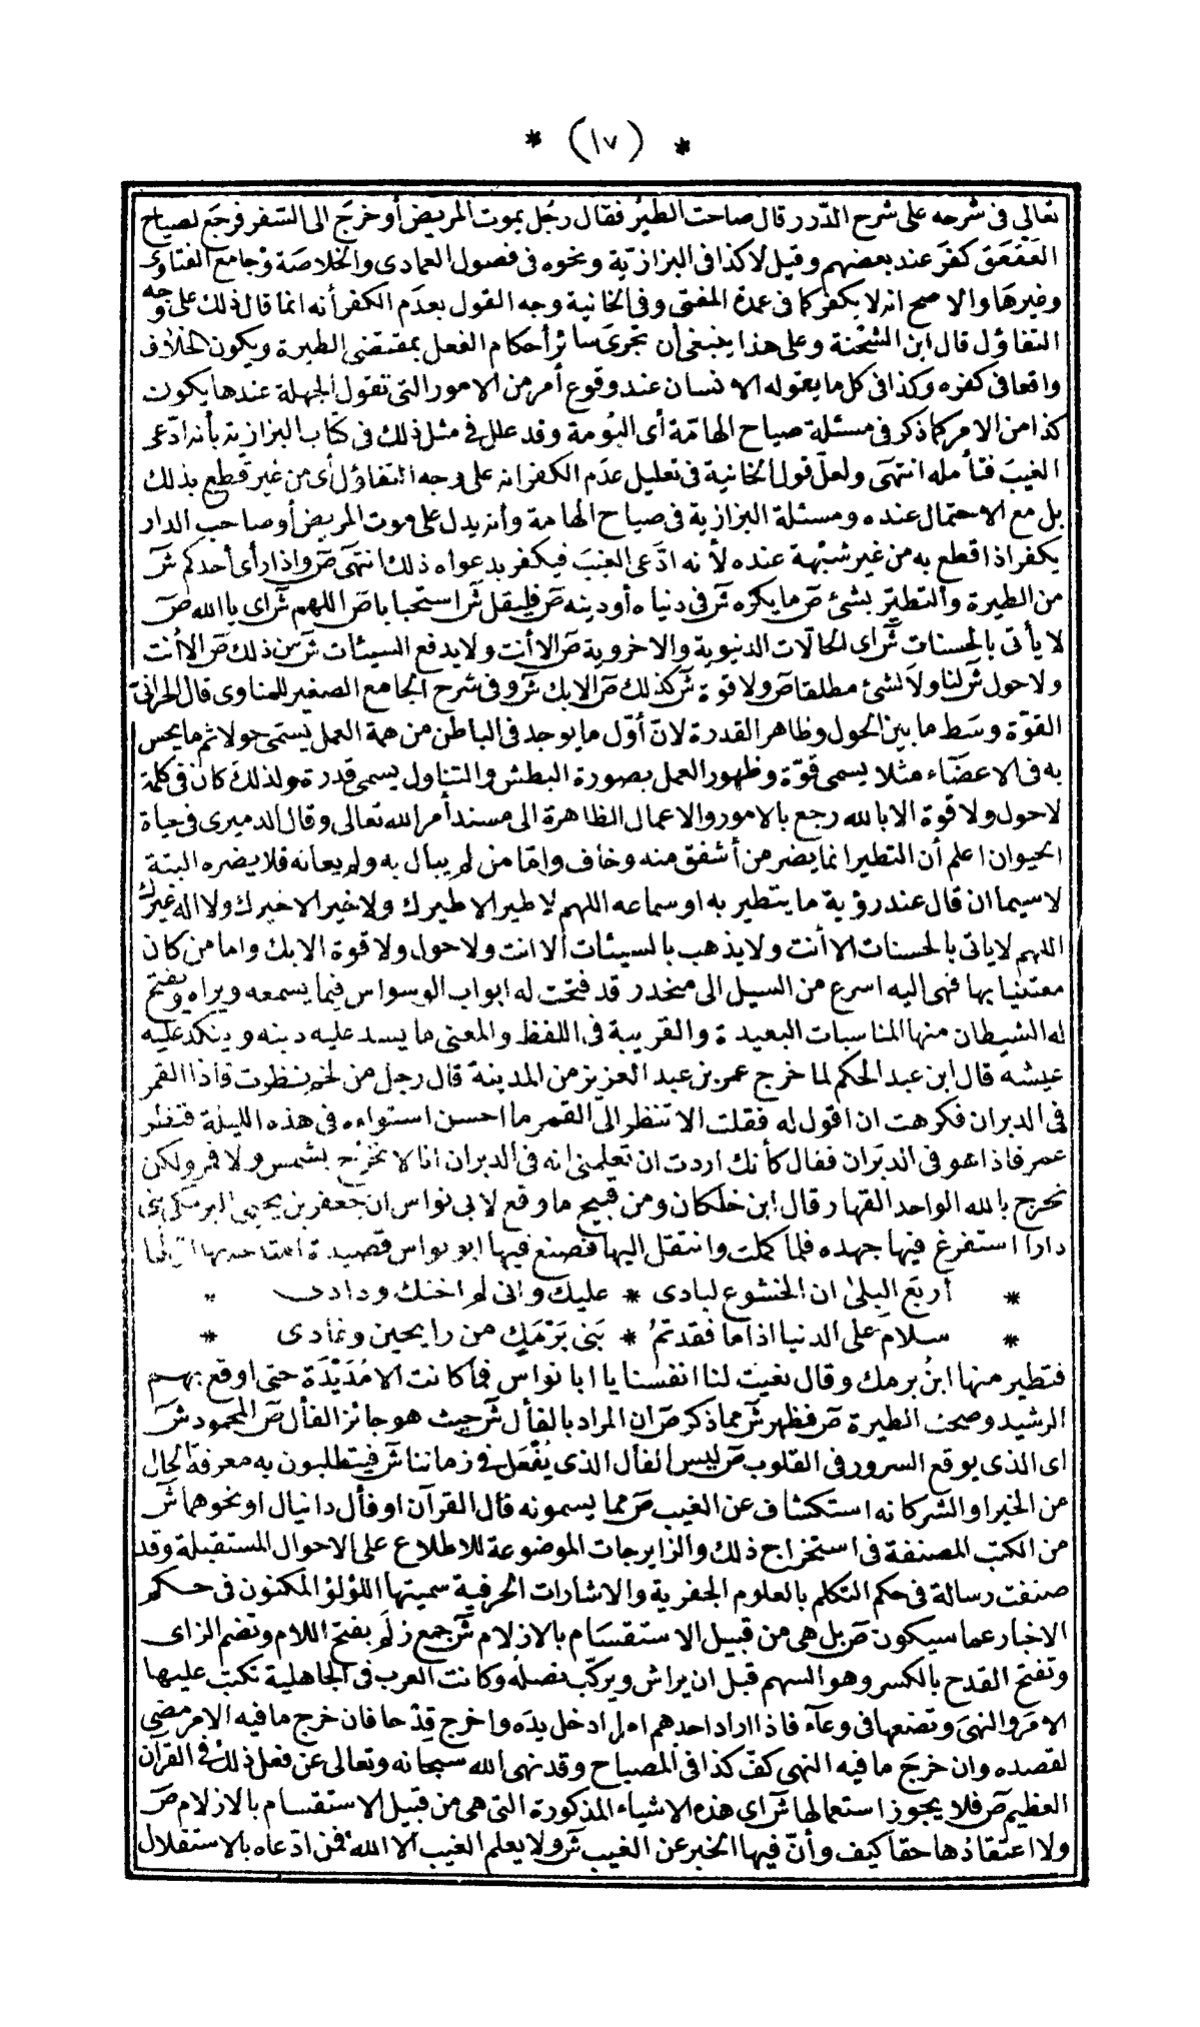 * (١٧) *
تعالى فى شرحه على شرح الدرر قال صاحت الطير فقال رجل بموت المريض أو خرج الى السفر فرجع لصياح
العقعق كفر عند بعضهم وقيل لا كذا فى البزازية ونحوه فى فصول العمادى والخلاصة وجامع الفتاوى
وغيرها والاصح انه لا يكفر كما فى عمدة المفتى وفى الخانية وجه القول بعدم الكفر أنه انما قال ذلك على وجه
التفاؤل قال ابن الشحنة وعلى هذا ينبغى أن تجرى سائر أحكام الفعل بمقتضى الطيرة ويكون الخلاف
واقعا فى كفره وكذا فى كل ما يقوله الانسان عند وقوع أمر من الامور التى تقول الجهلة عندها يكون
كذا من الامر كما ذكر فى مسئلة صياح الهامّة أى البُومة وقد علل فى مثل ذلك فى كتاب البزازية بأنه ادّعى
الغيب فتأمله انتهى ولعلّ قول الخانية فى تعليل عدم الكفر انه على وجه التفاؤل أى من غير قطع بذلك
بل مع الاحتمال عنده ومسئلة البزازية فى صياح الهامة وأنه يدل على موت المريض أو صاحب الدار
يكفر اذا قطع به من غير شبهة عنده لأنه ادّعى الغيب فيكفر بدعواه ذلك انتهى ص واذا رأى أحدكم ش
من الطيرة والتطير بشئ ص ما يكره ش فى دنياه أو دينه ص فليقل ش استحبابا ص اللهم ش اى يا الله ص
لا يأتى بالحسنات ش اى الحالات الدنيوية والاخروية ص الا أنت ولا يدفع السيئات ش من ذلك ص الا أنت
ولا حول ش لنا ولا لشئ مطلقا ص ولا قوة ش كذلك ص الا بك ش وفى شرح الجامع الصغير للمناوى قال الحرانى
القوّة وسط ما بين الحول وظاهر القدرة لانّ أوّل ما يوجد فى الباطن من همة العمل يسمى حولا ثم ما يحس
به فى الاعضاء مثلا يسمى قوّة وظهور العمل بصورة البطش والتناول يسمى قدرة ولذلك كان فى كلمة
لا حول ولا قوة الا بالله رجع بالامور والاعمال الظاهرة الى مسند أمر الله تعالى وقال الدميرى فى حياة
الحيوان اعلم أن التطير انما يضر من أشفق منه وخاف وامّا من لم يبال به ولم يعانه فلا يضره البتة
لا سيما ان قال عند رؤية ما يتطير به او سماعه اللهم لا طير الا طيرك ولا خير الا خيرك ولا اله غيرك
اللهم لا ياتى بالحسنات الا أنت ولا يذهب بالسيئات الا انت ولا حول ولا قوة الا بك واما من كان
معتنيا بها فهى اليه اسرع من السيل الى منحدر قد فتحت له ابواب الوسواس فيما يسمعه ويراه ويفتح
له الشيطان منها المناسبات البعيدة والقريبة فى اللفظ والمعنى ما يسد عليه دينه وينكد عليه
عيشه قال ابن عبد الحكم لما خرج عمر بن عبد العزيز من المدينة قال رجل من لخم نظرت فاذا القمر
فى الدبران فكرهت ان اقول له فقلت الا تنظر الى القمر ما احسن استواءه فى هذه الليلة فنظر
عمر فاذا هو فى الدبران فقال كأنك اردت ان تعلمنى انه فى الدبران انا لا نخرج بشمس ولا قمر ولكن
نخرج بالله الواحد القهار قال ابن خلكان ومن قبيح ما وقع لابى نواس ان جعفر بن يحيى البرمكى بنى
دارا استفرغ فيها جهده فلما كملت وانتقل اليها فصنع فيها ابو نواس قصيدة امتدحه بها اوّلها
* أربع البلى ان الخشوع لبادى * عليك وانى لم اخنك ودادى *
* سلام على الدنيا اذا ما فقدتم * بنى برمك من رايحين وغادى *
فتطير منها ابن برمك وقال نعيت لنا انفسنا يا ابا نواس فما كانت الا مُدَيْدَة حتى اوقع بهم
الرشيد وصحت الطيرة ص فظهر ش مما ذكر ص ان المراد بالفأل ش حيث هو جائز الفأل ص المحمود ش
اى الذى يوقع السرور فى القلوب ص ليس الفأل الذى يُفْعَل فى زماننا ش فيتطلبون به معرفة الحال
من الخير او الشر كانه استكشاف عن الغيب ص مما يسمونه فال القرآن او فأل دانيال او نحوهما ش
من الكتب المصنفة فى استخراج ذلك والزايرجات الموضوعة للاطلاع على الاحوال المستقبلة وقد
صنفت رسالة فى حكم التكلم بالعلوم الجفرية والاشارات الحرفية سميتها اللؤلؤ المكنون فى حكم
الاخبار عما سيكون ص بل هى من قبيل الاستقسام بالازلام ش جمع زلم بفتح اللام وتضم الزاى
وتفتح القدح بالكسر وهو السهم قبل ان يراش ويركّب نصله وكانت العرب فى الجاهلية تكتب عليها
الامر والنهى وتضعها فى وعاء فاذا اراد احدهم امرا ادخل يده واخرج قِدْحا فان خرج ما فيه الامر مضى
لقصده وان خرج ما فيه النهى كفّ كذا فى المصباح وقد نهى الله سبحانه وتعالى عن فعل ذلك فى القرآن
العظيم ص فلا يجوز استعمالها ش اى هذه الاشياء المذكورة التى هى من قبيل الاستقسام بالازلام ص
ولا اعتقادها حقا كيف وأنّ فيها الخبر عن الغيب ش ولا يعلم الغيب الا الله فمن ادّعاه بالاستقلال